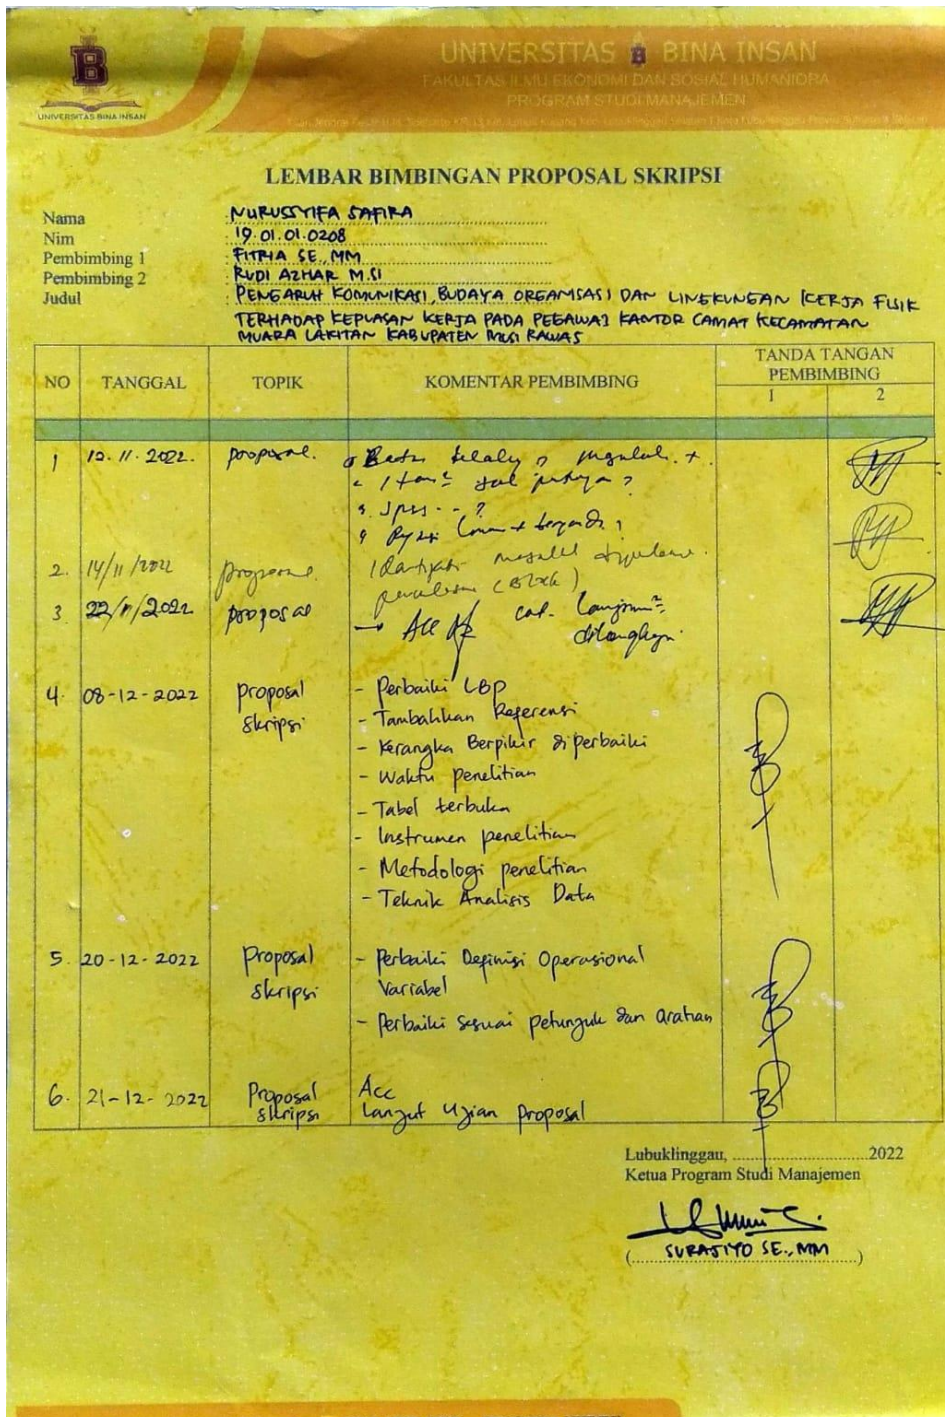 UNIVERSITAS BINA INSAN
FAKULTAS ILMU EKONOMI DAN SOSIAL HUMANIORA
PROGRAM STUDI MANAJEMEN
B
UNIVERSITAS BINA INSAN
LEMBAR BIMBINGAN PROPOSAL SKRIPSI
Nama : NURUSSYIFA SAFIRA
Nim : 19.01.01.0208
Pembimbing 1 : FITRIA SE., MM
Pembimbing 2 : RUDI AZHAR M.SI
Judul : PENGARUH KOMUNIKASI, BUDAYA ORGANISASI DAN LINGKUNGAN KERJA FISIK
TERHADAP KEPUASAN KERJA PADA PEGAWAI KANTOR CAMAT KECAMATAN
MUARA LAKITAN KABUPATEN MUSI RAWAS
NO TANGGAL TOPIK KOMENTAR PEMBIMBING TANDA TANGAN PEMBIMBING
1 2
1 12.11.2022. proposal.
2. 14/11/2022 proposal.
3. 22/11/2022 proposal → Acc
4. 08-12-2022 Proposal Skripsi - Perbaiki LBP
- Tambahkan Referensi
- Kerangka Berpikir diperbaiki
- Waktu penelitian
- Tabel terbuka
- Instrumen penelitian
- Metodologi penelitian
- Teknik Analisis Data
5. 20-12-2022 Proposal Skripsi - Perbaiki Definisi Operasional
Variabel
- Perbaiki sesuai petunjuk dan arahan
6. 21-12-2022 Proposal Skripsi Acc
Lanjut Ujian Proposal
Lubuklinggau, ..............................2022
Ketua Program Studi Manajemen
(SURAJIYO SE., MM)